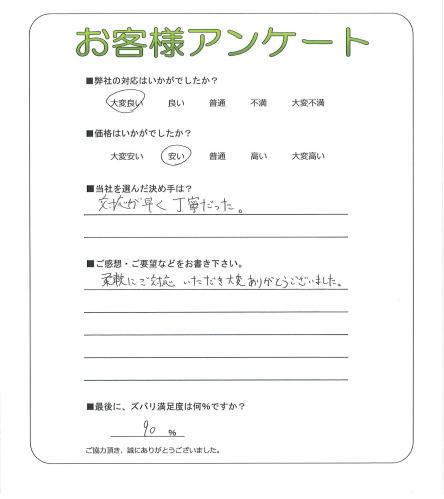 お客様アンケート
■弊社の対応はいかがでしたか？
大変良い 良い 普通 不満 大変不満
■価格はいかがでしたか？
大変安い 安い 普通 高い 大変高い
■当社を選んだ決め手は？
対応が早く丁寧だった。
■ご感想・ご要望などをお書き下さい。
柔軟にご対応いただき大変ありがとうございました。
■最後に、ズバリ満足度は何%ですか？
90 %
ご協力頂き、誠にありがとうございました。